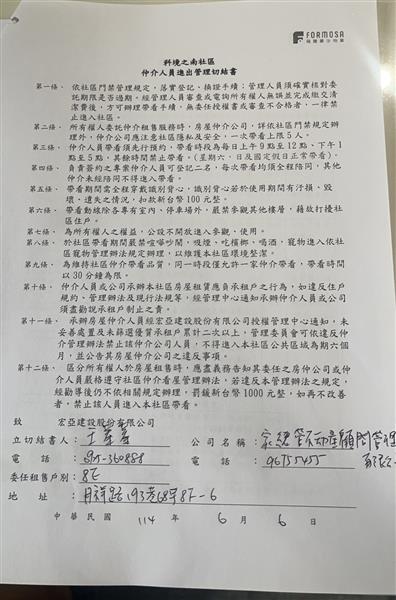 FORMOSA
科境之南社區
仲介人員進出管理切結書
第一條、 依社區門禁管理規定，落實登記、換證手續；管理人員須確實核對委
託期限是否過期。經管理人員審查或電詢所有權人無誤並完成繳交清
潔費後，方可辦理帶看手續，無委任授權書或審查不合格者，一律禁
止進入社區。
第二條、 所有權人委託仲介租售服務時，房屋仲介公司，詳依社區門禁規定辦
理外，仲介公司應注意社區隱私及安全，一次帶看上限5人。
第三條、 仲介人員帶看須先行預約，帶看時段為每日上午9點至12點、下午1
點至5點，其餘時間禁止帶看。(星期六、日及國定假日正常帶看)。
第四條、 負責簽約之專案仲介人員可登記二名，每次帶看均須全程陪同，其他
仲介未經陪同不得進入帶看。
第五條、 帶看期間需全程穿戴識別背心，識別背心若於使用期間有汙損、毀
壞、遺失之情況，扣款新台幣100元整。
第六條、 帶看動線除各專有室內、停車場外，嚴禁參觀其他樓層，藉故打擾社
區住戶。
第七條、 為所有權人之權益，公設不開放進入參觀，使用。
第八條、 於社區帶看期間嚴禁喧嘩吵鬧，吸煙、吃檳榔、喝酒，寵物進入依社
區寵物管理辦法規定辦理，以維護本社區環境整潔。
第九條、 為維持社區仲介帶看品質，同一時段僅允許一家仲介帶看，帶看時間
以30分鐘為限。
第十條、 仲介人員或公司承辦本社區房屋租賃應負承租戶之行為，如違反住戶
規約、管理辦法及現行法規等，經管理中心通知承辦仲介人員或公司
須盡勸說承租戶制止之責。
第十一條、 承辦房屋仲介人員經宏亞建設股份有限公司授權管理中心通知，未
妥善處置及未篩選優質承租戶累計二次以上，管理委員會可依違反仲
介管理辦法禁止該仲介公司人員，不得進入本社區公共區域為期六個
月，並公告其房屋仲介公司之違反事項。
第十二條、 區分所有權人於房屋租售時，應盡義務告知其委任之房仲公司或仲
介人員嚴格遵守社區仲介看屋管理辦法，若違反本管理辦法之規定，
經勸導後仍不依相關規定辦理，罰鍰新台幣1000元整，如再不改善
者，禁止該人員進入本社區帶看。
致 宏亞建設股份有限公司
立切結書人： 公司名稱：
電 話 ： 電 話 ： 96755455
委任租售戶別： 8E
地 址 ：
中 華 民 國 114 年 6 月 6 日